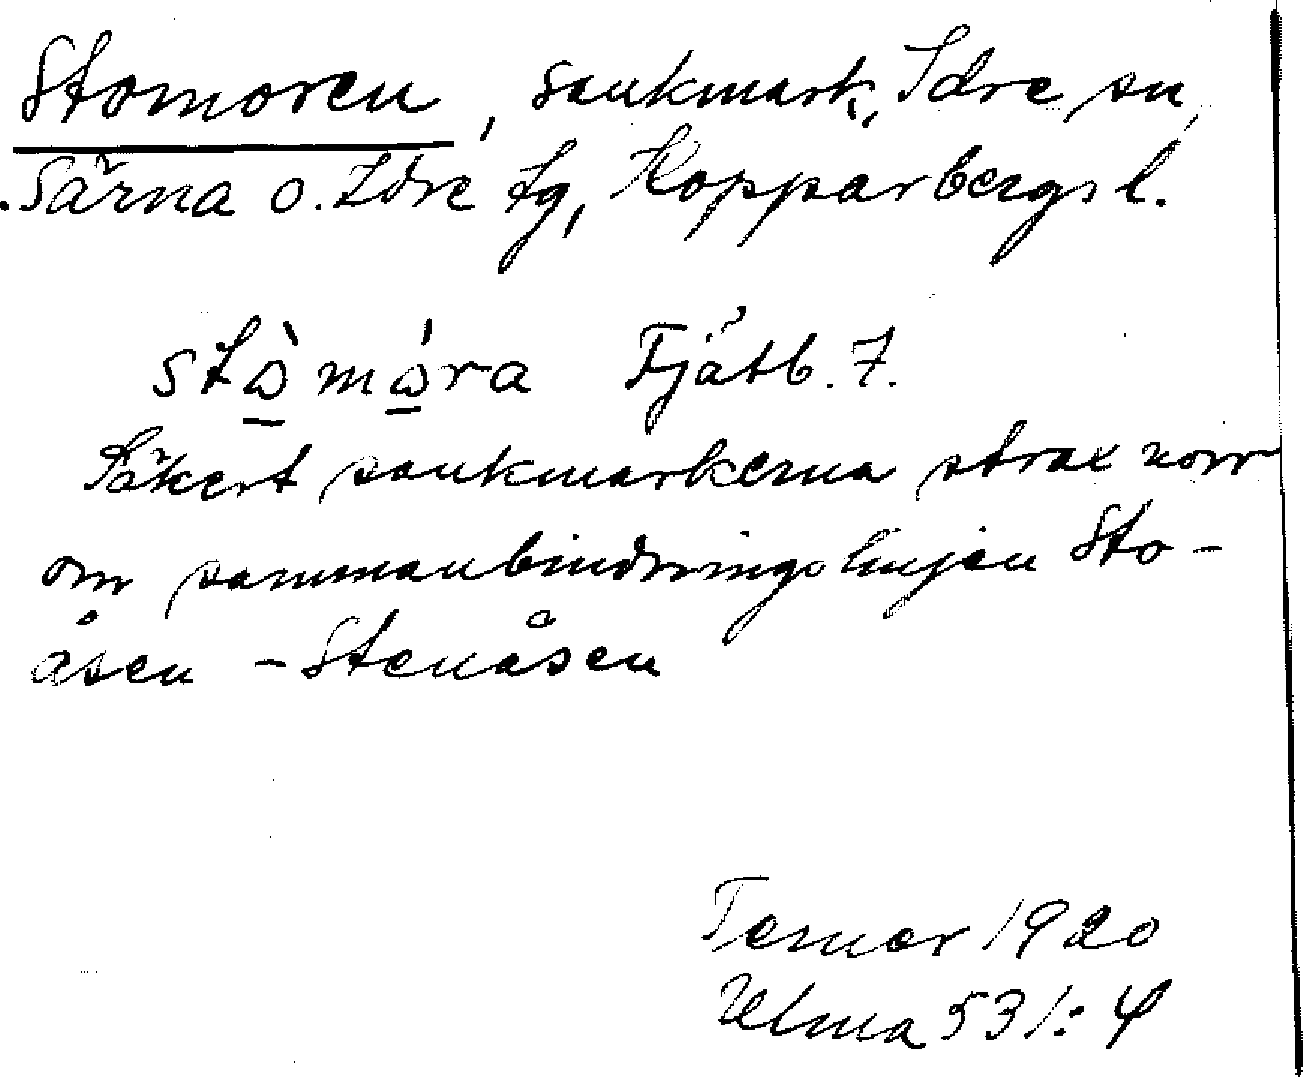 Stomoren, sankmark, Idre sn,
Särna o. Idre tg, Kopparbergs l.
stὼmώra Fjätb. 7.
Säkert sankmarkerna strax norr
om sammanbindningslinjen Sto-
åsen - Stenåsen
Tenner 1920
Ulma 531:4